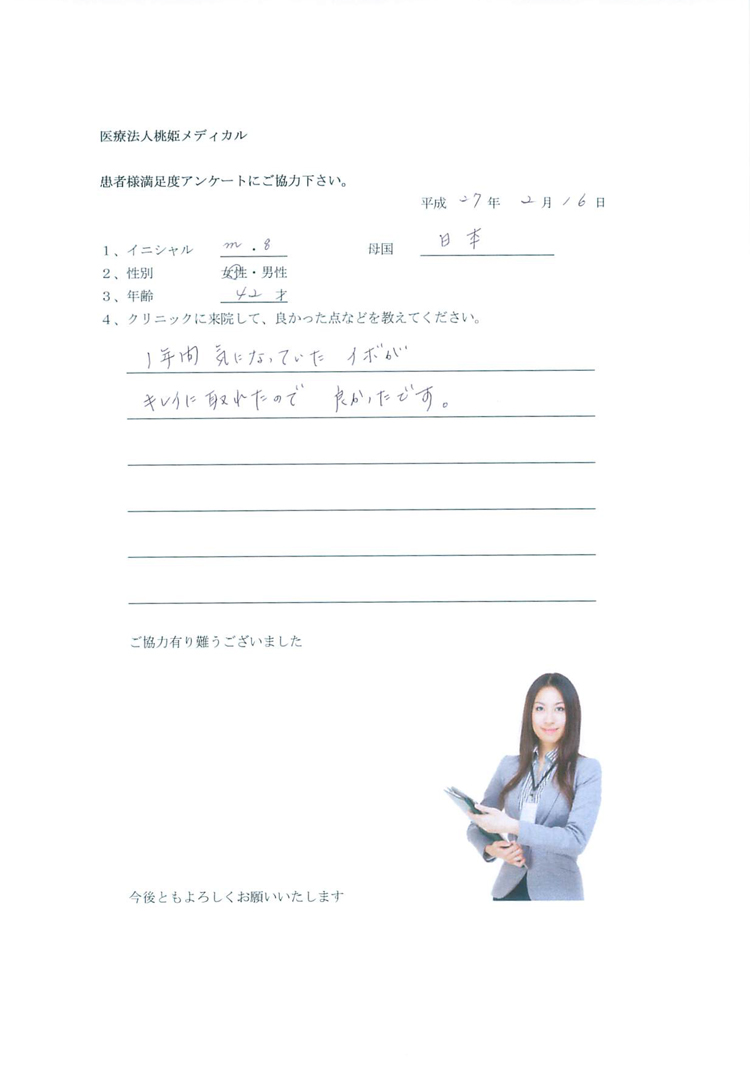 医療法人桃姫メディカル
患者様満足度アンケートにご協力下さい。
平成 27年 2月16日
1、イニシャル m.8 母国 日本
2、性別 女性・男性
3、年齢 42才
4、クリニックに来院して、良かった点などを教えてください。
1年間気になっていた イボが
キレイに取れたので 良かったです。
ご協力有り難うございました
今後ともよろしくお願いいたします